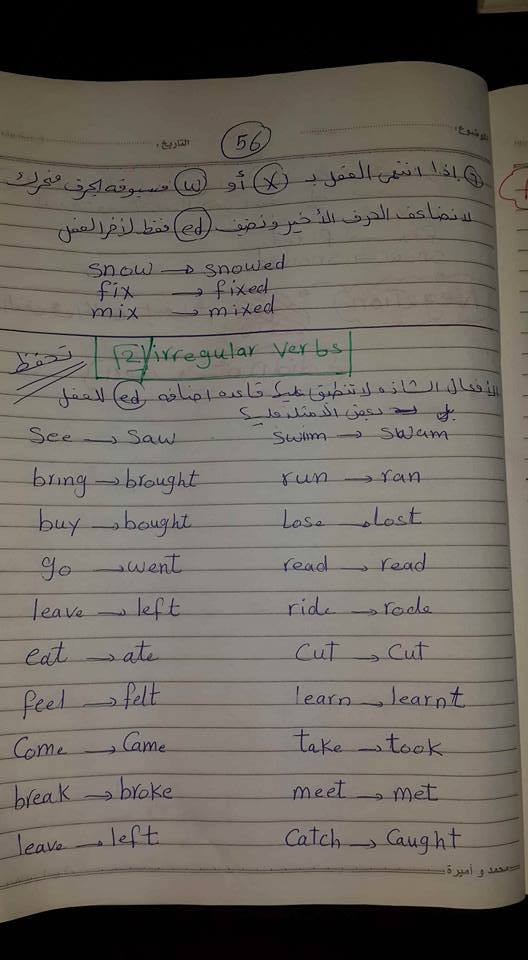 الموضوع: 56 التاريخ:
④ إذا انتهى الفعل بـ (x) أو (w) مسبوقة بحرف متحرك
لا نضاعف الحرف الأخير ونضيف (ed) فقط لآخر الفعل
snow → snowed
fix → fixed
mix → mixed
تحفظ [2] irregular verbs
الأفعال الشاذه لا تنطبق عليها قاعده اضافه (ed) للفعل
بعض الأمثلة
see → saw swim → swam
bring → brought run → ran
buy → bought Lose → lost
go → went read → read
leave → left ride → rode
eat → ate cut → cut
feel → felt learn → learnt
Come → Came take → took
break → broke meet → met
leave → left Catch → Caught
محمد و أميرة